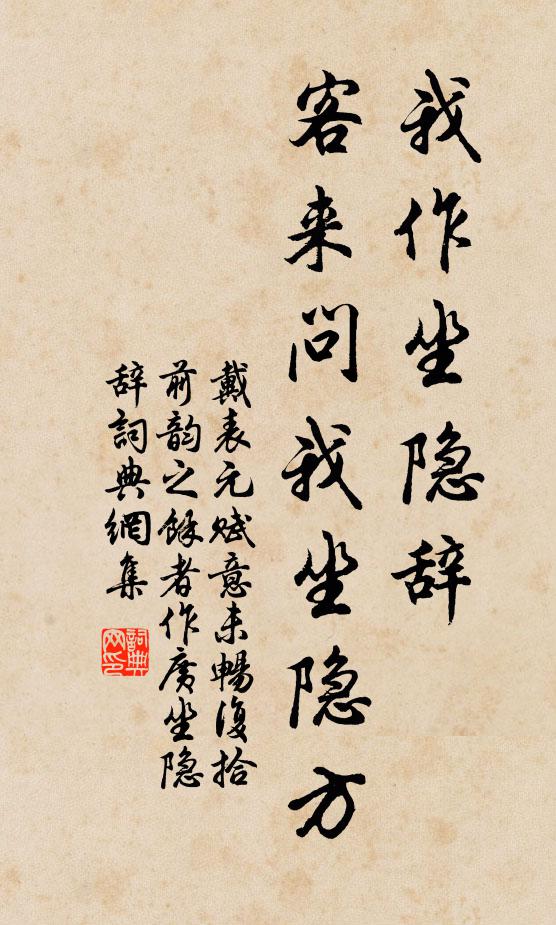 我作坐隐辞
客来问我坐隐方
戴表元赋意未畅复拾
前韵之馀者作广坐隐
辞詞典網集
詞典
网印